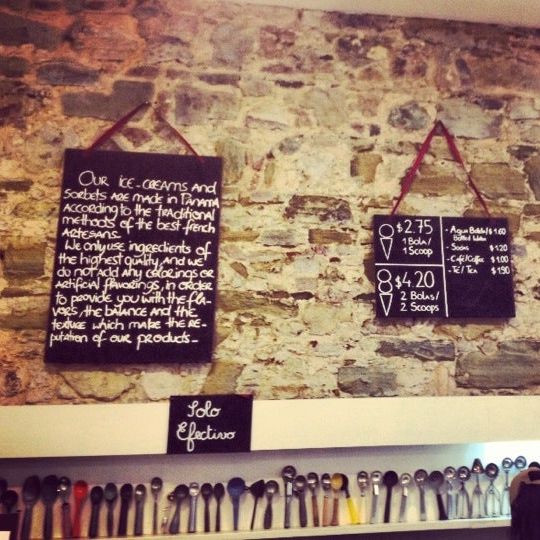 Our ice-creams and
sorbets are made in Panama
according to the traditional
methods of the best french
artesans.
We only use ingredients of
the highest quality, and we
do not add any colorings or
artificial flavorings, in order
to provide you with the fla-
vors, the balance and the
texture which make the re-
putation of our products-
$2.75
1 Bola/
1 Scoop
$4.20
2 Bolas/
2 Scoops
- Agua Botella/ $1.60
Bottled Water
- Sodas $1.20
- Café/Coffee $1.00
- Té/Tea $1.90
Solo
Efectivo